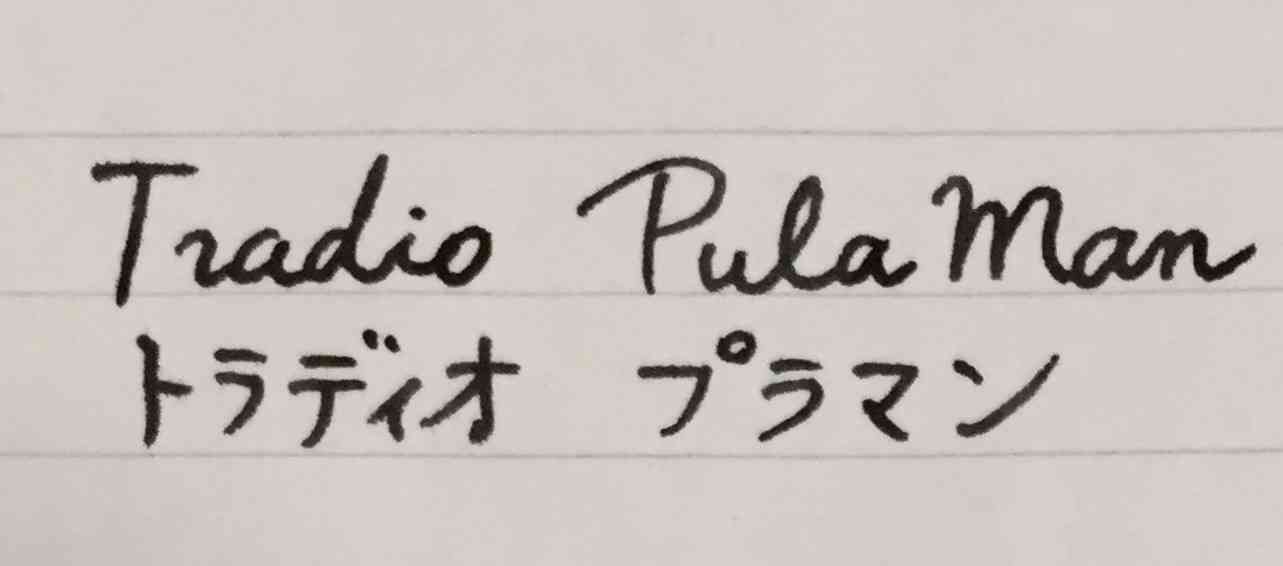 Tradio Pula Man
トラディオ プラマン